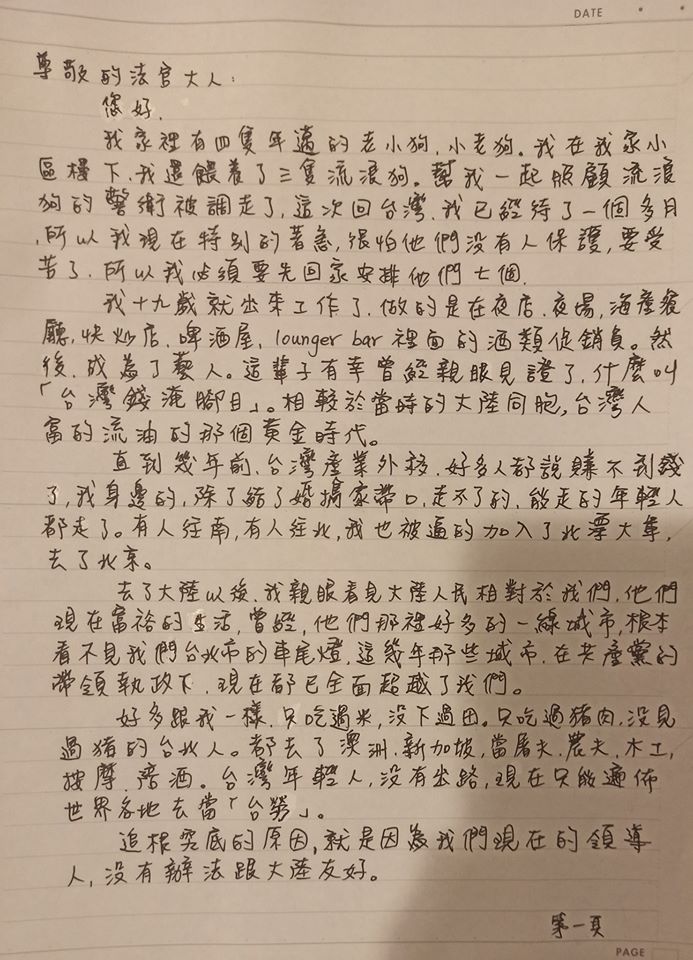 DATE
尊敬的法官大人:
您好.
我家裡有四隻年邁的老小狗,小老狗。我在我家小
區樓下.我還餵養了三隻流浪狗。幫我一起照顧流浪
狗的警衛被調走了,這次回台灣.我已經待了一個多月
,所以我現在特別的著急,很怕他們沒有人保護,要受
苦了.所以我必須要先回家安排他們七個.
我十九歲就出來工作了.做的是在夜店.夜場,海產餐
廳,快炒店.啤酒屋,lounger bar 裡面的酒類促銷員。然
後.成為了藝人。這輩子有幸曾經親眼見證了,什麼叫
「台灣錢淹腳目」。相較於當時的大陸同胞,台灣人
富的流油的那個黃金時代。
直到幾年前.台灣產業外移.好多人都說賺不到錢
了,我身邊的,除了結了婚搞家帶口,走不了的,能走的年輕人
都走了。有人往南,有人往北,我也被逼的加入了北漂大軍,
去了北京。
去了大陸以後.我親眼看見大陸人民相對於我們,他們
現在富裕的生活,曾經,他們那裡好多的一線城市,根本
看不見我們台北市的車尾燈,這幾年那些城市.在共產黨的
帶領執政下.現在都已全面超越了我們。
好多跟我一樣.只吃過米,沒下過田。只吃過豬肉,沒見
過豬的台北人。都去了澳洲.新加坡,當屠夫.農夫.木工,
按摩.陪酒。台灣年輕人,沒有出路,現在只能遍佈
世界各地去當「台勞」。
追根究底的原因,就是因為我們現在的領導
人,沒有辦法跟大陸友好。
第一頁
PAGE